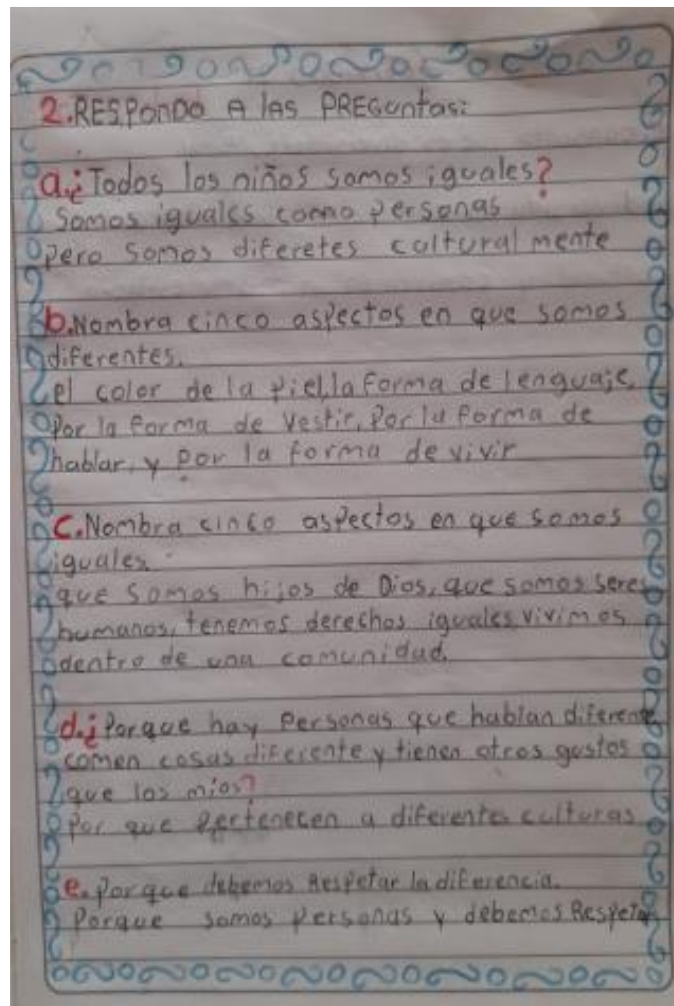 2.RESPONDO A lAS PREGuntas:
a.¿Todos los niños somos iguales?
Somos iguales como personas
pero somos diferetes cultural mente
b.Nombra cinco aspectos en que somos
diferentes.
el color de la piel, la forma de lenguaje,
Por la forma de vestir, Por la forma de
hablar, y por la forma de vivir
C.Nombra cinco aspectos en que somos
iguales.
que somos hijos de Dios, que somos seres
humanos, tenemos derechos iguales, vivimos
dentro de una comunidad.
d.¿Porque hay personas que hablan diferente
comen cosas diferente y tienen otros gustos
que los mios?
Por que pertenecen a diferentes culturas
e.Porque debemos Respetar la diferencia.
Porque somos personas y debemos Respetar